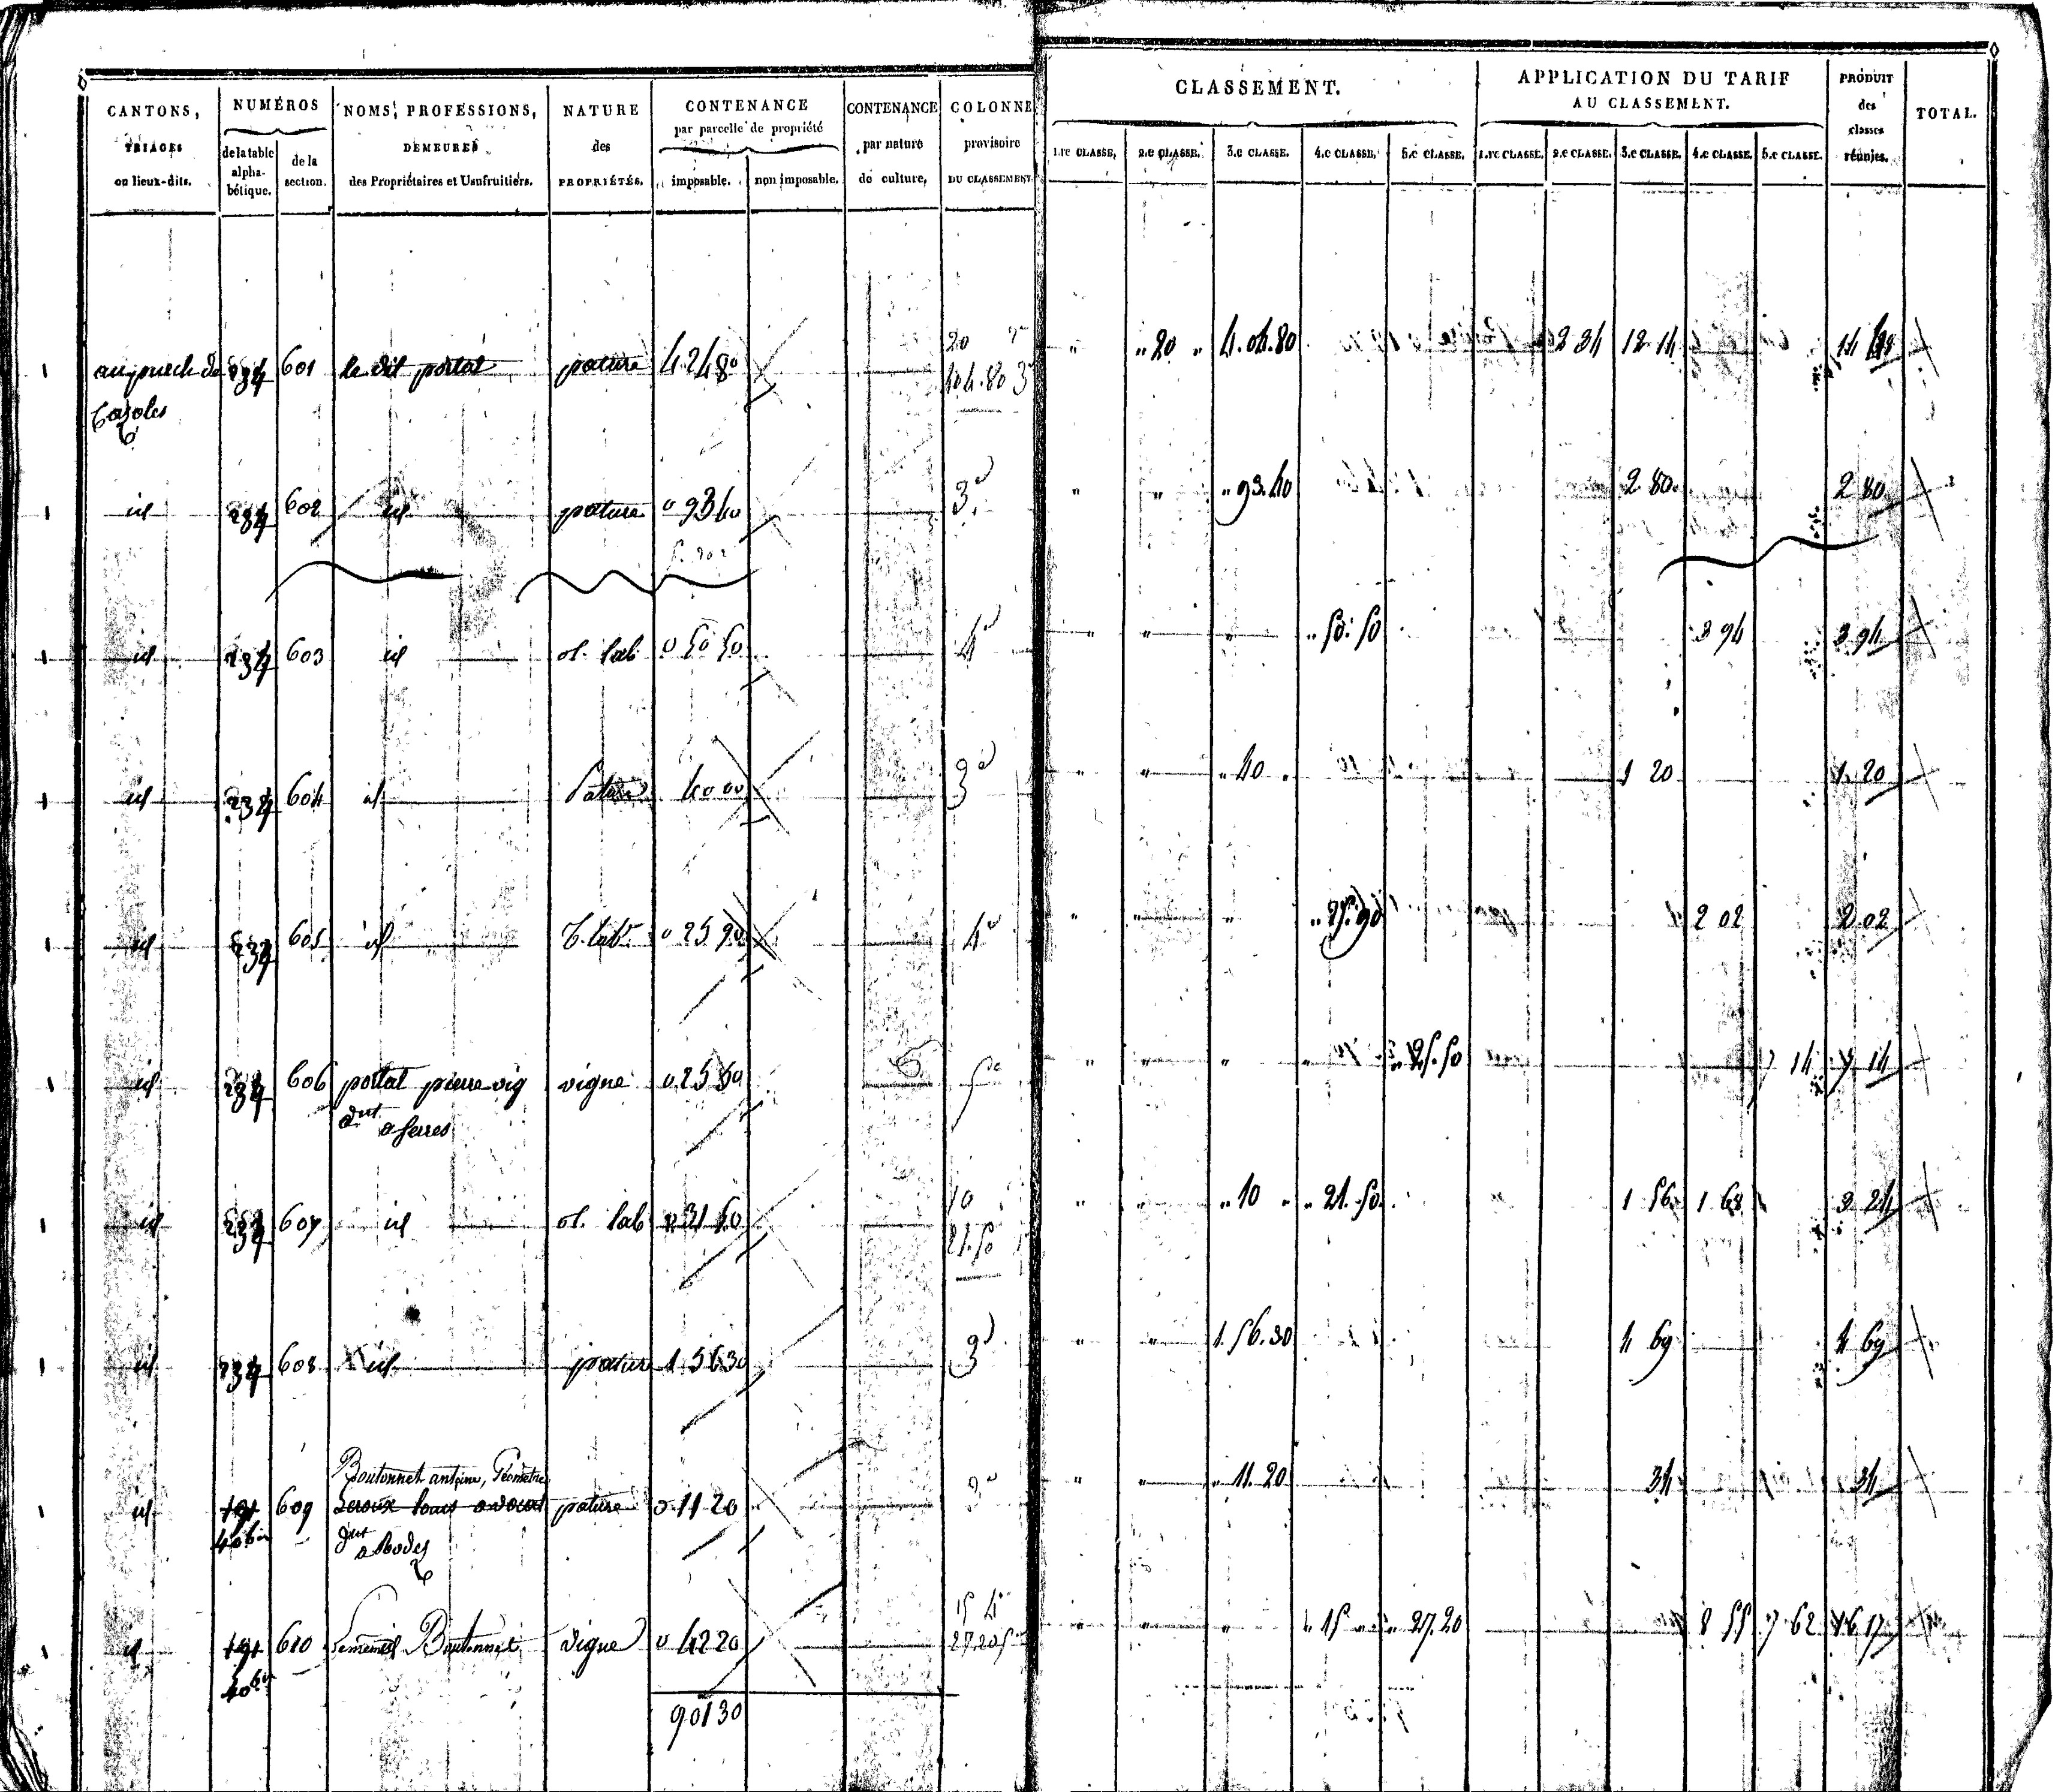 CANTONS, TRIAGES ou lieux-dits. NUMÉROS de la table alphabétique. de la section. NOMS, PROFESSIONS, DEMEURES des Propriétaires et Usufruitiers. NATURE des PROPRIÉTÉS. CONTENANCE par parcelle de propriété imposable. non imposable. CONTENANCE par nature de culture. COLONNE provisoire DU CLASSEMENT
CLASSEMENT. 1.re CLASSE. 2.e CLASSE. 3.e CLASSE. 4.e CLASSE. 5.e CLASSE. APPLICATION DU TARIF AU CLASSEMENT. 1.re CLASSE. 2.e CLASSE. 3.e CLASSE. 4.e CLASSE. 5.e CLASSE. PRODUIT des classes réunies. TOTAL.
au puech de 234 601 le dit portal pature 4 24 80 20 " 20 " 4.04.80 2 34 12 14 14 48
Cazoles 404.80 3
id 234 602 id pature 0 93 40 3e " " " 93.40 2 80 2 80
id 234 603 id ol. lab 0 50 50 4e " " " " 50.50 3 94 3 94
id 234 604 id Pature 40 00 3e " " " 40 " 1 20 1 20
id 234 605 id T. lab 0 25 90 4e " " " " 25.90 2 02 2 02
id 234 606 portal pierre vig vigne 0 25 50 5e " " " " " 25.50 7 14 7 14
dnt a Serres
id 234 607 id ol. lab 0 31 50 10 " " " 10 " " 21.50 1 56 1 68 3 24
21.50
id 234 608 id pature 1 56 30 3e " " 1.56.30 4 69 4 69
Boutonnet antoine, Géomètre
id 191 609 Leroux louis avocat pature 0 11 20 3e " " " 11.20 34 34
40 bis dnt a Rodez
id 191 610 Lememe Boutonnet vigne 0 42 20 15 4e " " " " 15 " " 27.20 8 55 7 62 16 17
40 bis 27.20 5
9 01 30